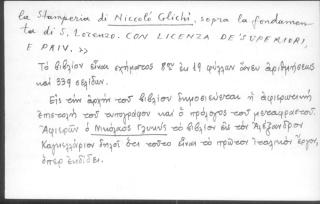 la Stamperia di Niccolò Glichi, sopra la fondamen-
ta di S. Lorenzo. CON LICENZA DE' SUPERIORI,
E PRIV. >>
Τὸ βιβλίον εἶναι σχήματος 8ον ἐκ 19 φύλλων ἄνευ ἀριθμήσεως
καὶ 339 σελίδων.
Εἰς τὴν ἀρχὴν τοῦ βιβλίου δημοσιεύεται ἡ ἀφιερωτικὴ
ἐπιστολὴ τοῦ τυπογράφου καὶ ὁ πρόλογος τοῦ μεταφραστοῦ.
Ἀφιερῶν ὁ Νικόλαος Γλυκὺς τὸ βιβλίον εἰς τὸν Ἀλέξανδρον
Καγκελλάριον δηλοῖ ὅτι τοῦτο εἶναι τὸ πρῶτον ἰταλικὸν ἔργον,
ὅπερ ἐκδίδει.